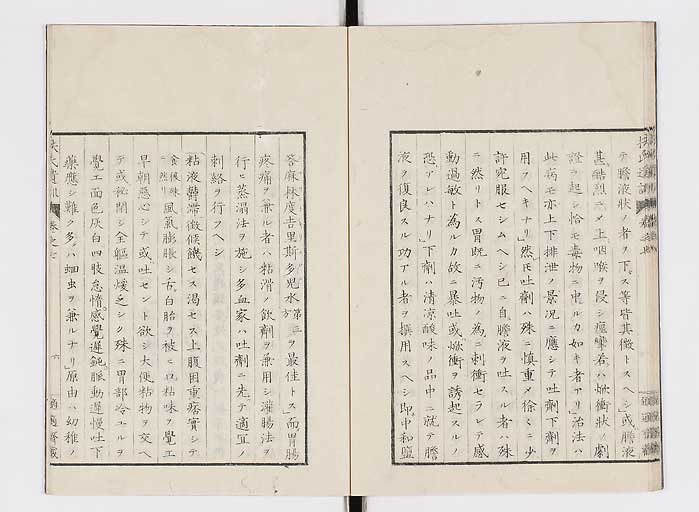 テ膽液狀ノ者ヲ下ス等皆其徵トスヘシ」或膽液
甚酷烈ニメ上咽喉ヲ侵シ痙攣若ハ焮衝狀ノ劇
證ヲ起シ恰モ毒物ニ中ルカ如キ者アリ」治法ハ
此病モ亦上下排泄ノ景況ニ應シテ吐劑下劑ヲ
用フヘキナリ」然モ吐劑ハ殊ニ愼重メ徐々ニ少
許宛服セシムヘシ已ニ自膽液ヲ吐スル者ハ殊
ニ然リトス胃既ニ汚物ノ為ニ刺衝セラレテ感
動過敏ト為ルカ故ニ暴吐或焮衝ヲ誘起スルノ
恐アレハナリ」下劑ハ清凉酸味ノ品中ニ就テ膽
液ヲ復良スル功アル者ヲ撰用スヘシ即中和鹽
荅麻林度𠮷里斯多兒水第二方ヲ最佳トス」而胃腸
疼痛ヲ兼ル者ハ粘滑ノ飲劑ヲ兼用シ灌腸法ヲ
行ヒ蒸溻法ヲ施シ多血家ハ吐劑ニ先テ適宜ノ
刺絡ヲ行フヘシ
粘液鬱滯徵候饑セス渴セス上腹困重痞實シテ
食後殊ニ然リ風氣膨脹シ舌白胎ヲ被ヒ口粘味ヲ覺エ
早朝惡心シテ或吐セント欲シ大便粘物ヲ交ヘ
テ或秘閉シ全軀溫煖乏シク殊ニ胃部冷エルヲ
覺エ面色灰白四肢怠惰感覺遲鈍脈動遲慢吐下
藥應シ難ク多ハ蛔虫ヲ兼ルナリ」原由ハ幼稚ノ
卷之七
六
適適齋藏